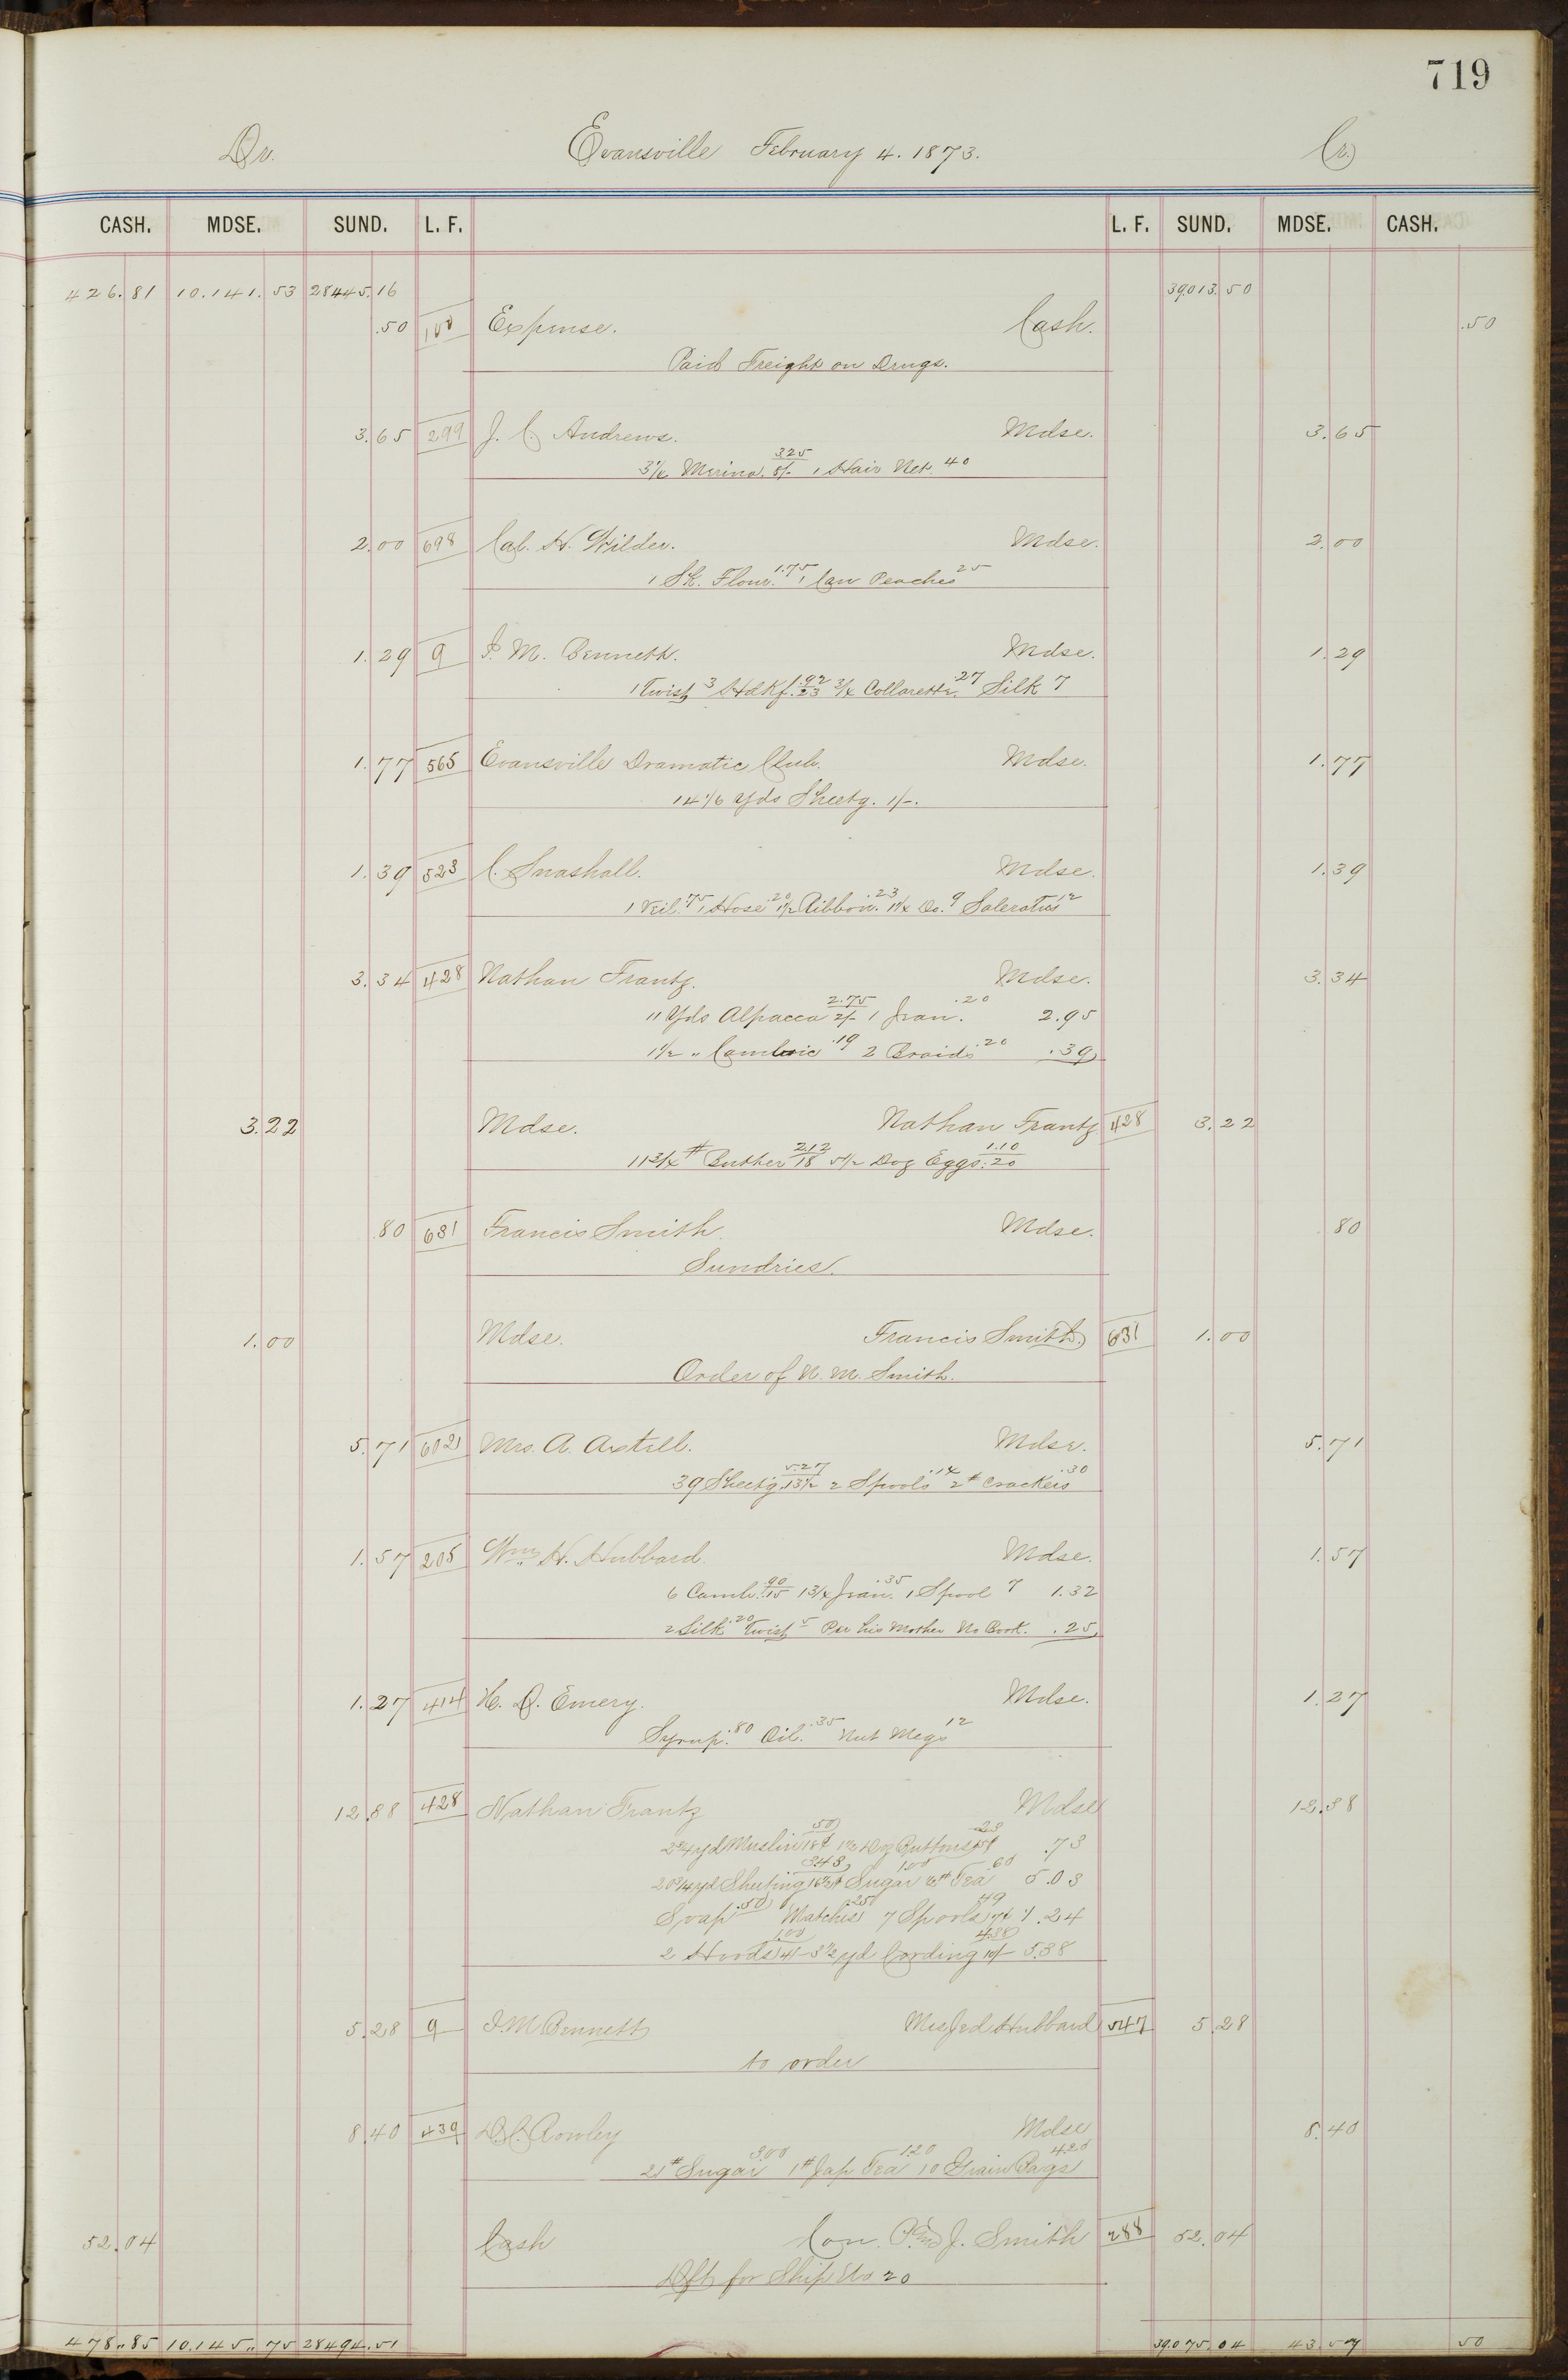 719
Dr. Evansville February 4. 1873. Cr.
CASH. MDSE. SUND. L. F. L. F. SUND. MDSE. CASH.
426.81 10.141.53 28445.16 39.013.50
.50 100 Expense. Cash. .50
Paid Freight on Drugs.
3.65 299 J. C. Andrews. Mdse. 3.65
3 1/4 Merino. 3.25 8/- 1 Hair Net. 40
2.00 698 Cal. H. Wilder. Mdse. 2.00
1 Sk. Flour. 1.75 1 Can Peaches 25
1.29 9 I. M. Bennett. Mdse. 1.29
1 Twist 3 4 Hdkf. .92 .23 3/4 Collarette. .27 Silk 7
1.77 565 Evansville Dramatic Club. Mdse. 1.77
14 1/6 Yds Sheetg. 1/-.
1.39 523 C. Snashall. Mdse. 1.39
1 Veil. .75 1 Hose .20 1 1/2 Ribbon. .23 1 1/4 Do. 9 Saleratus 12
3.34 428 Nathan Frantz. Mdse. 3.34
11 Yds Alpacca 2.75 2/- 1 Jean. .20 2.95
1 1/2 " Cambric .19 2 Braids .20 .39
3.22 Mdse. Nathan Frantz 428 3.22
11 3/4 # Butter 2.12 18 5 1/2 Doz Eggs. 1.10 .20
.80 631 Francis Smith. Mdse. .80
Sundries.
1.00 Mdse. Francis Smith. 631 1.00
Order of N. M. Smith.
5.71 602 Mrs. A. Axtell. Mdse. 5.71
39 Sheet'g. 5.27 .13 1/2 2 Spools .14 2 # Crackers .30
1.57 205 Wm H. Hubbard. Mdse. 1.57
6 Camb. .90 .15 1 3/4 Jean. .35 1 Spool 7 1.32
2 Silk .20 Twist 5 Per his Mother No Book. .25
1.27 414 H. D. Emery. Mdse. 1.27
Syrup. .80 Oil. .35 Nut Megs 12
12.38 428 Nathan Frantz Mdse 12.38
2 3/4 yd Muslin 50 18¢ 1 1/2 Doz Buttons 23 15¢ .73
20 3/4 yd Sheeting 3.43 16 1/2¢ Sugar 1.00 1/2 # Tea 60 5.03
Soap .50 Matches .25 7 Spools 49 7¢ 1.24
2 Hoods 1.00 4/- 3 1/2 yd Cording 4.38 10/- 5.38
5.28 9 I. M. Bennett Mrs Jed Hubbard 547 5.28
to order
8.40 439 D. C. Rowley Mdse 8.40
25 # Sugar 3.00 1 # Jap Tea 1.20 10 Grain Bags 4.20
52.04 Cash Con. P. & J. Smith 288 52.04
Dft for Ship No 20
478.85 10.145.75 28494.51 39.075.04 43.57 50